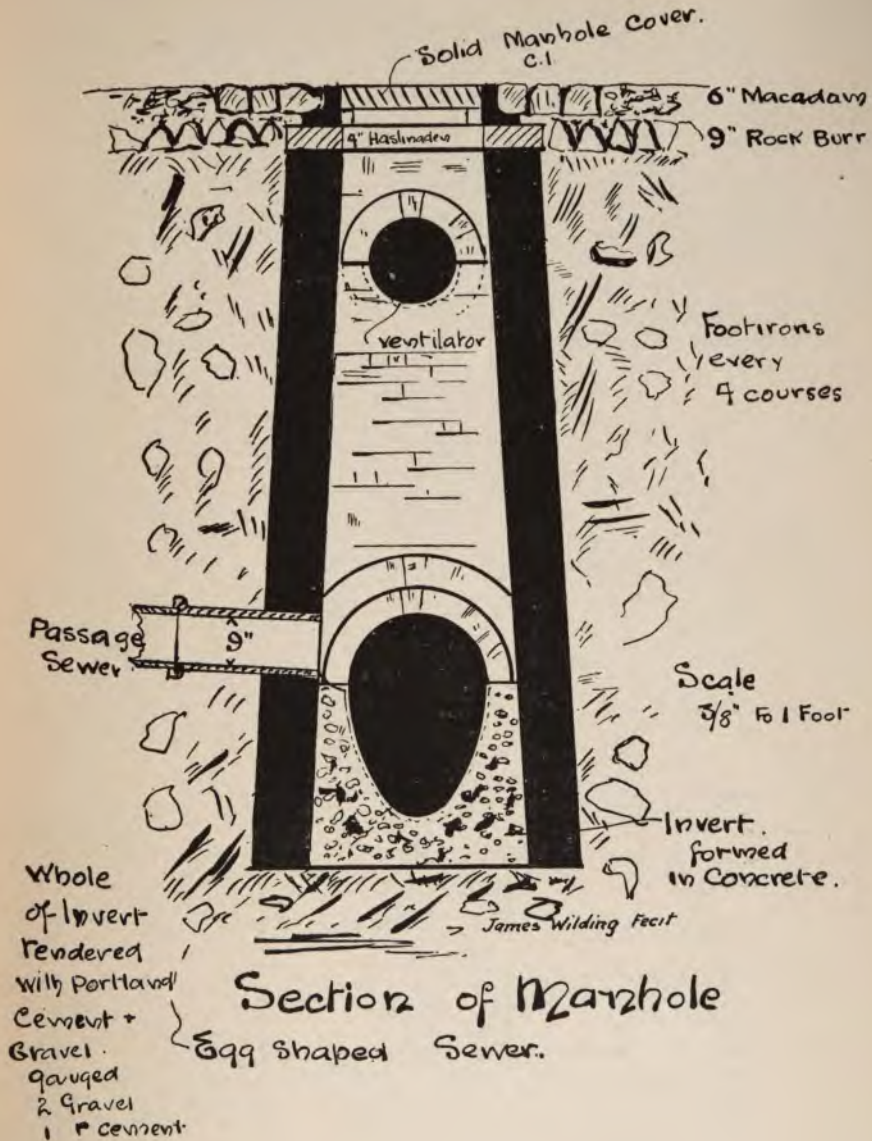 Solid Manhole Cover.
C.I.
6" Macadam
9" Rock Burr
4" Haslingden
ventilator
Footirons
every
4 courses
Passage
Sewer.
9"
Scale
3/8" to 1 Foot
Invert.
formed
in Concrete.
James Wilding Fecit
Whole
of Invert
rendered
with Portland
Cement +
Gravel.
gauged
2 Gravel
1 Cement
Section of Manhole
Egg Shaped Sewer.